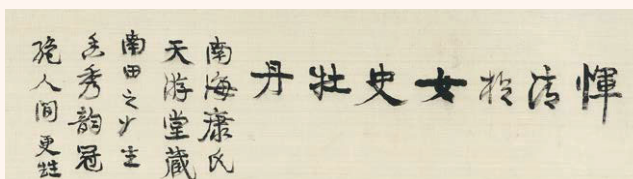 惲清於女史牡丹
南海康氏
天游堂藏
南田之少女
秀韵冠
绝人间更甡